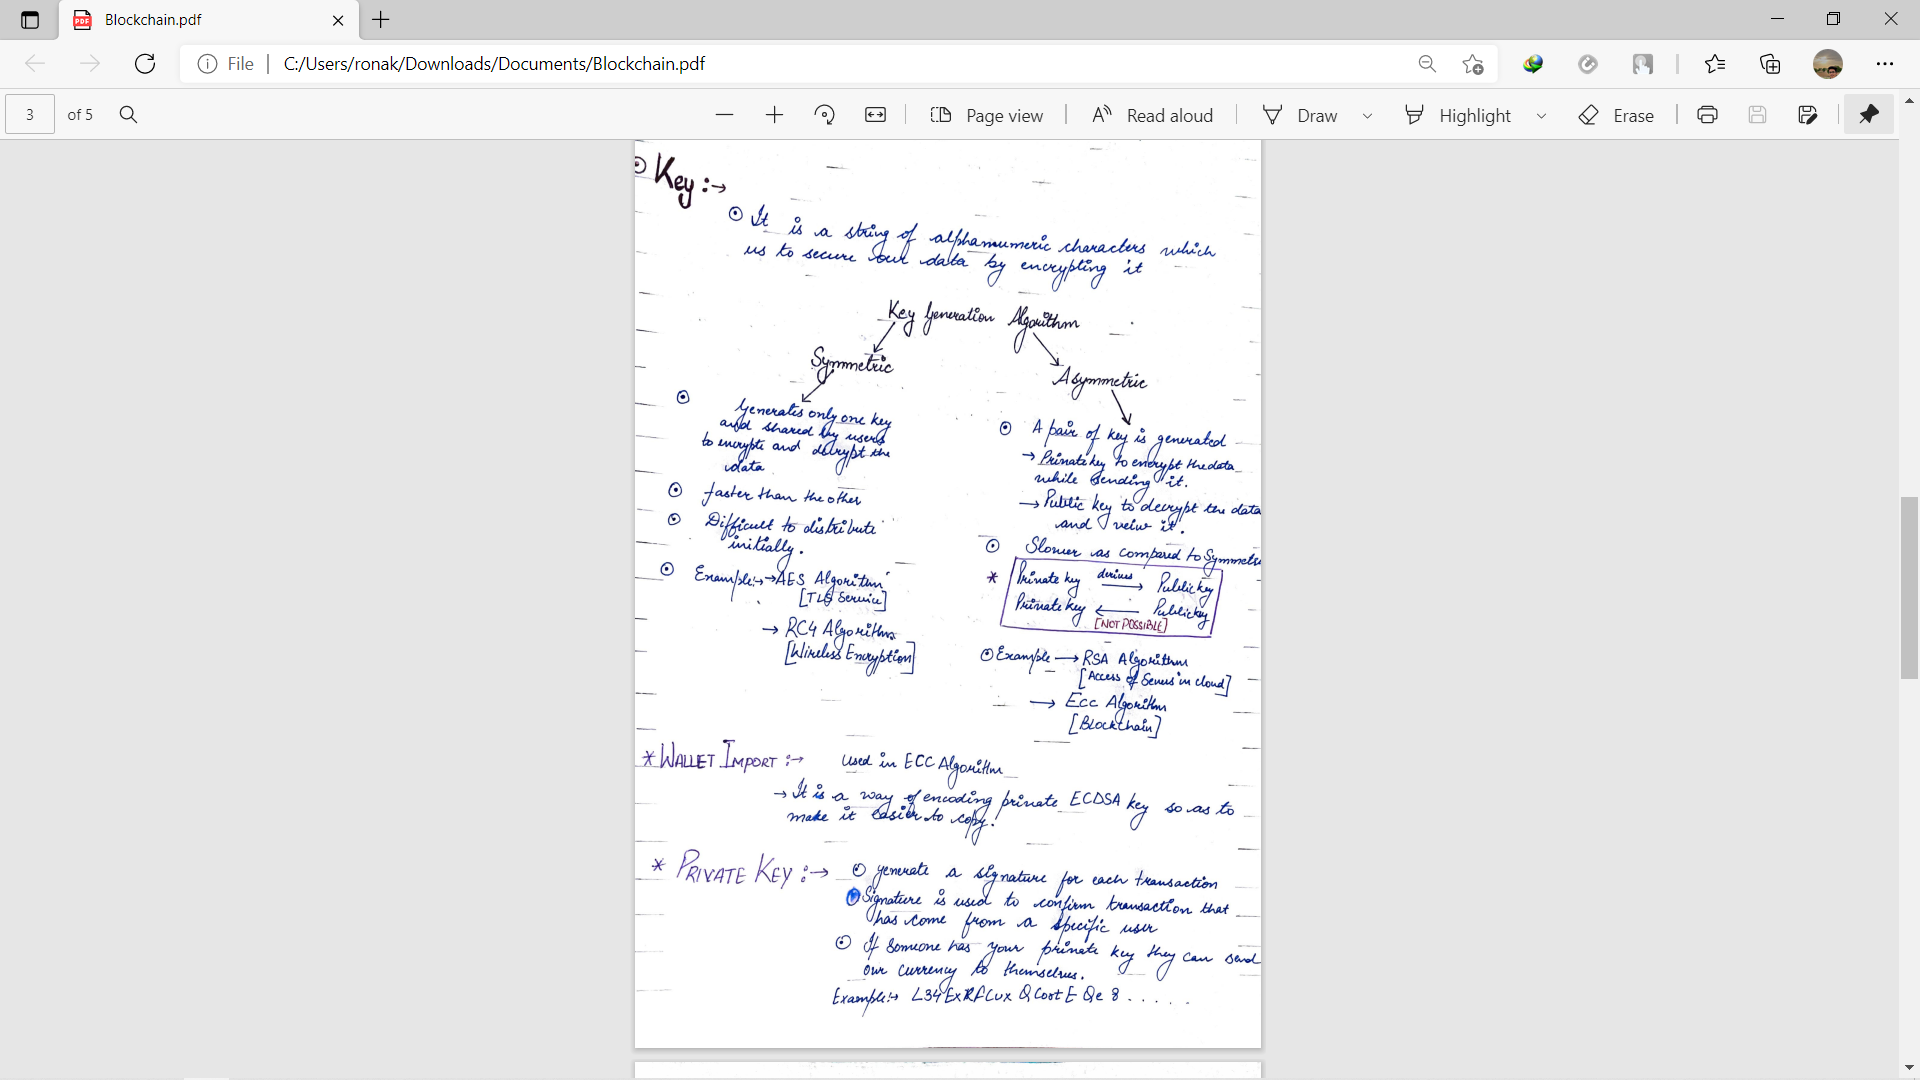 Blockchain.pdf
File
C:/Users/ronak/Downloads/Documents/Blockchain.pdf
3 of 5
Page view
Read aloud
Draw
Highlight
Erase
Key :→
It is a string of alphanumeric characters which
us to secure our data by encrypting it
Key Generation Algorithm
Symmetric
Asymmetric
Generates only one key
and shared by users
to encrypte and decrypt the
data
faster than the other
Difficult to distribute
initially.
Example:→ → AES Algorithm
[TLS Service]
→ RC4 Algorithm
[Wireless Encryption]
A pair of key is generated
→ Private key to encrypt the data
while sending it.
→ Public key to decrypt the data
and veiw it.
Slower as compared to Symmetric
* Private key derives → Public key
Private key ← Public key
[NOT POSSIBLE]
Example → RSA Algorithm
[Access of Server in cloud]
→ Ecc Algorithm
[Blockchain]
* WALLET IMPORT :→ used in ECC Algorithm
→ It is a way of encoding private ECDSA key so as to
make it easier to copy.
* PRIVATE KEY :→ generate a signature for each transaction
Signature is used to confirm transaction that
has come from a specific user
If someone has your private key they can send
our currency to themselves.
Example:→